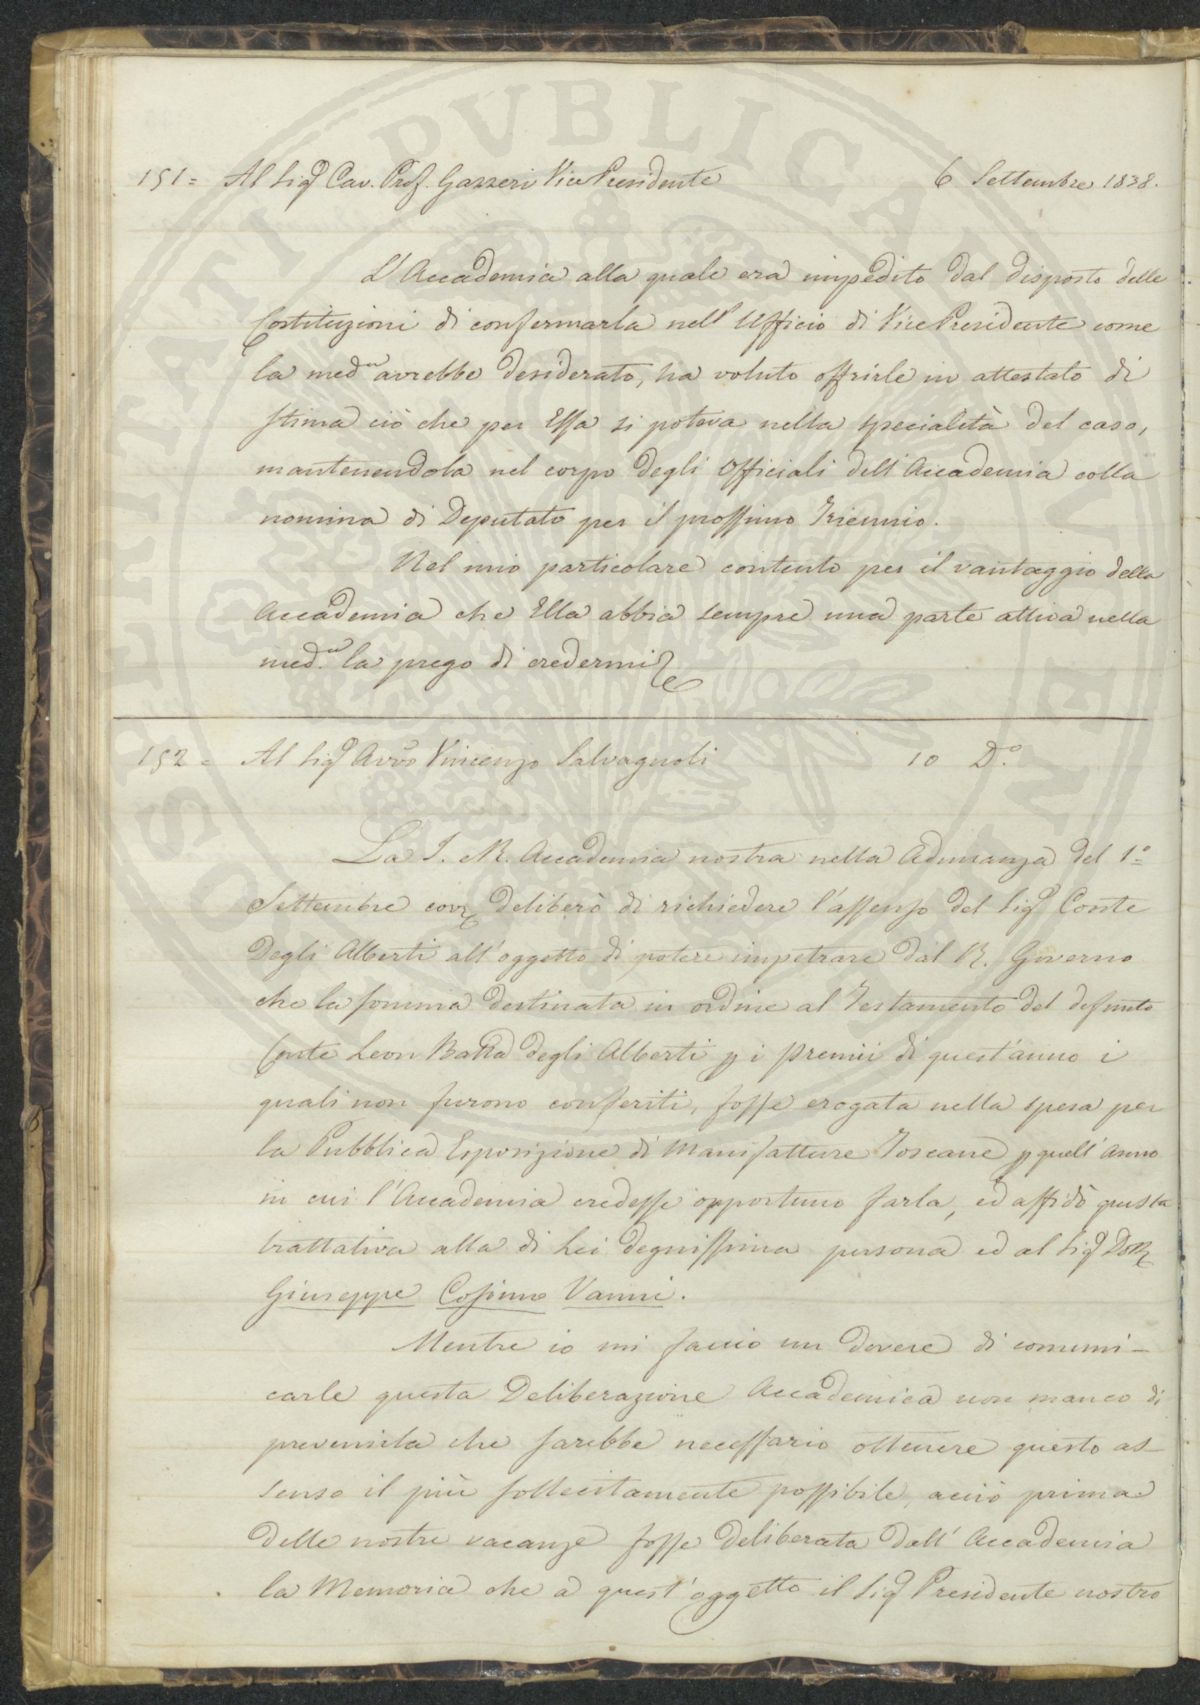 151= Al Sig.r Cav. Prof. Gazzeri Vice Presidente 6 Settembre 1838.
L'Accademia alla quale era impedito dal disposto delle
Costituzioni di confermarla nell'Ufficio di Vice Presidente come
la med.a avrebbe desiderato, ha voluto offrirle in attestato di
stima ciò che per Essa si poteva nella specialità del caso,
mantenendola nel corpo degli Officiali dell'Accademia colla
nomina di Deputato per il prossimo Triennio.
Nel mio particolare contento per il vantaggio della
Accademia che Ella abbia sempre una parte attiva nella
med.a la prego di credermi
152= Al Sig.r Avv.o Vincenzo Salvagnoli 10 D.o
La I. R. Accademia nostra nella Adunanza del 1.o
Settembre corr. deliberò di richiedere l'assenso del Sig.r Conte
Degli Alberti all'oggetto di potere impetrare dal R. Governo
che la somma destinata in ordine al Testamento del defunto
Conte Leon Batta degli Alberti p i Premii di quest'anno i
quali non furono conferiti, fosse erogata nella spesa per
la Pubblica Esposizione di Manifatture Toscane p quell'Anno
in cui l'Accademia credesse opportuno farla, ed affidò questa
trattativa alla di Lei degnissima persona ed al Sig.r Dott.
Giuseppe Cosimo Vanni.
Mentre io mi faccio un dovere di comuni-
carle questa Deliberazione Accademica non manco di
prevenirla che sarebbe necessario ottenere questo as-
senso il più sollecitamente possibile, acciò prima
delle nostre vacanze fosse deliberata dall'Accademia
la Memoria che a quest'oggetto il Sig.r Presidente nostro
PVBLICAE VTILITATI PROSPERITATI